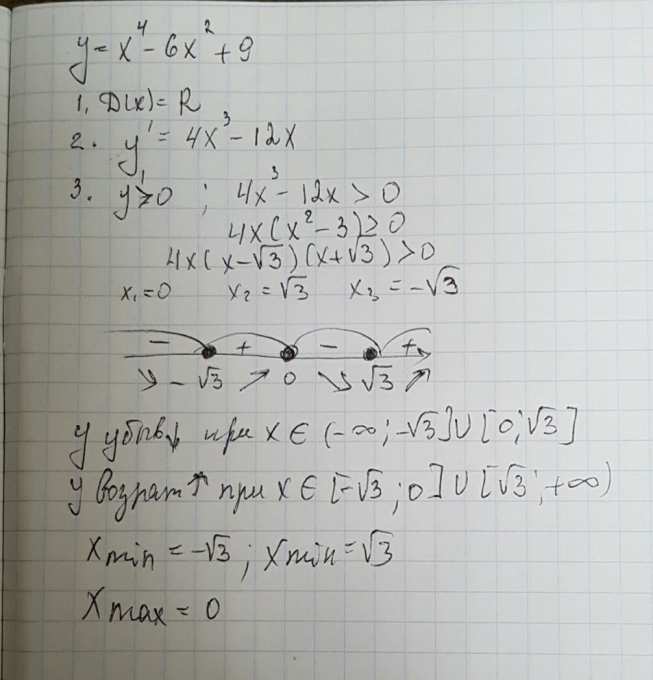 y = x⁴ - 6x² + 9
1. D(x) = R
2. y' = 4x³ - 12x
3. y' ≥ 0 ; 4x³ - 12x > 0
4x(x² - 3) ≥ 0
4x(x - √3)(x + √3) > 0
x₁ = 0 x₂ = √3 x₃ = -√3
- + - +
↘ -√3 ↗ 0 ↘ √3 ↗
y убыв ↓ при x ∈ (-∞; -√3] ∪ [0; √3]
y возраст ↑ при x ∈ [-√3; 0] ∪ [√3; +∞)
xmin = -√3; xmin = √3
xmax = 0